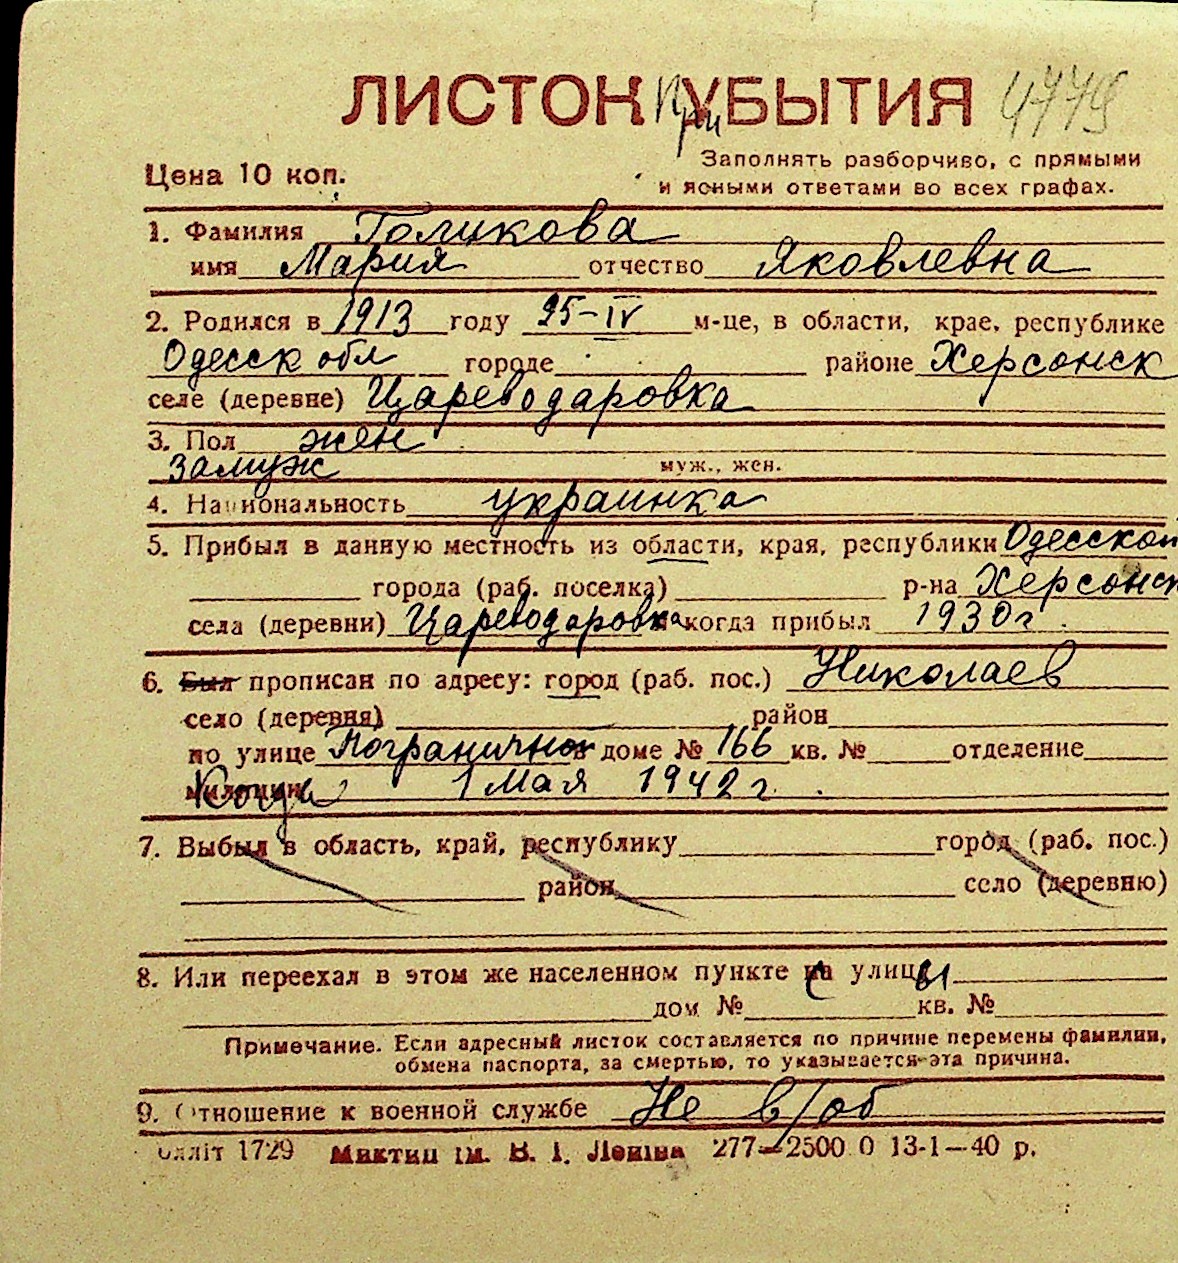 ЛИСТОК При УБЫТИЯ 4779
Цена 10 коп.
Заполнять разборчиво, с прямыми
и ясными ответами во всех графах.
1. Фамилия Голикова
имя Мария отчество Яковлевна
2. Родился в 1913 году 25-IV м-це, в области, крае, республике
Одесск обл городе районе Херсонск
селе (деревне) Цареводаровка
3. Пол жен
замуж муж., жен.
4. Национальность украинка
5. Прибыл в данную местность из области, края, республики Одесской
города (раб. поселка) р-на Херсонск
села (деревни) Цареводаровка когда прибыл 1930 г.
6. Был прописан по адресу: город (раб. пос.) Николаев
село (деревня) район
по улице Пограничной доме № 166 кв. № отделение
милиции Когда 1 Мая 1942 г.
7. Выбыл в область, край, республику город (раб. пос.)
район село (деревню)
8. Или переехал в этом же населенном пункте с улицы
дом № кв. №
Примечание. Если адресный листок составляется по причине перемены фамилии,
обмена паспорта, за смертью, то указывается эта причина.
9. Отношение к военной службе Не в/об
1729 ім. В. І. Леніна 277—2500 0 13-1—40 р.